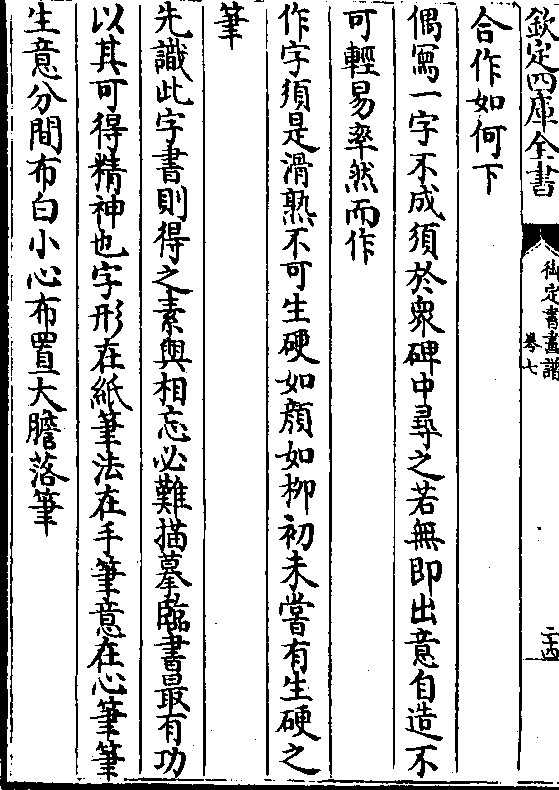 欽定四庫全書
御定書畫譜
卷七
二十四
合作如何下
偶寫一字不成須於衆碑中尋之若無即出意自造不
可輕易率然而作
作字須是滑熟不可生硬如顔如栁初未嘗有生硬之
筆
先識此字書則得之素與相忘必難描摹臨書最有功
以其可得精神也字形在紙筆法在手筆意在心筆筆
生意分間布白小心布置大膽落筆